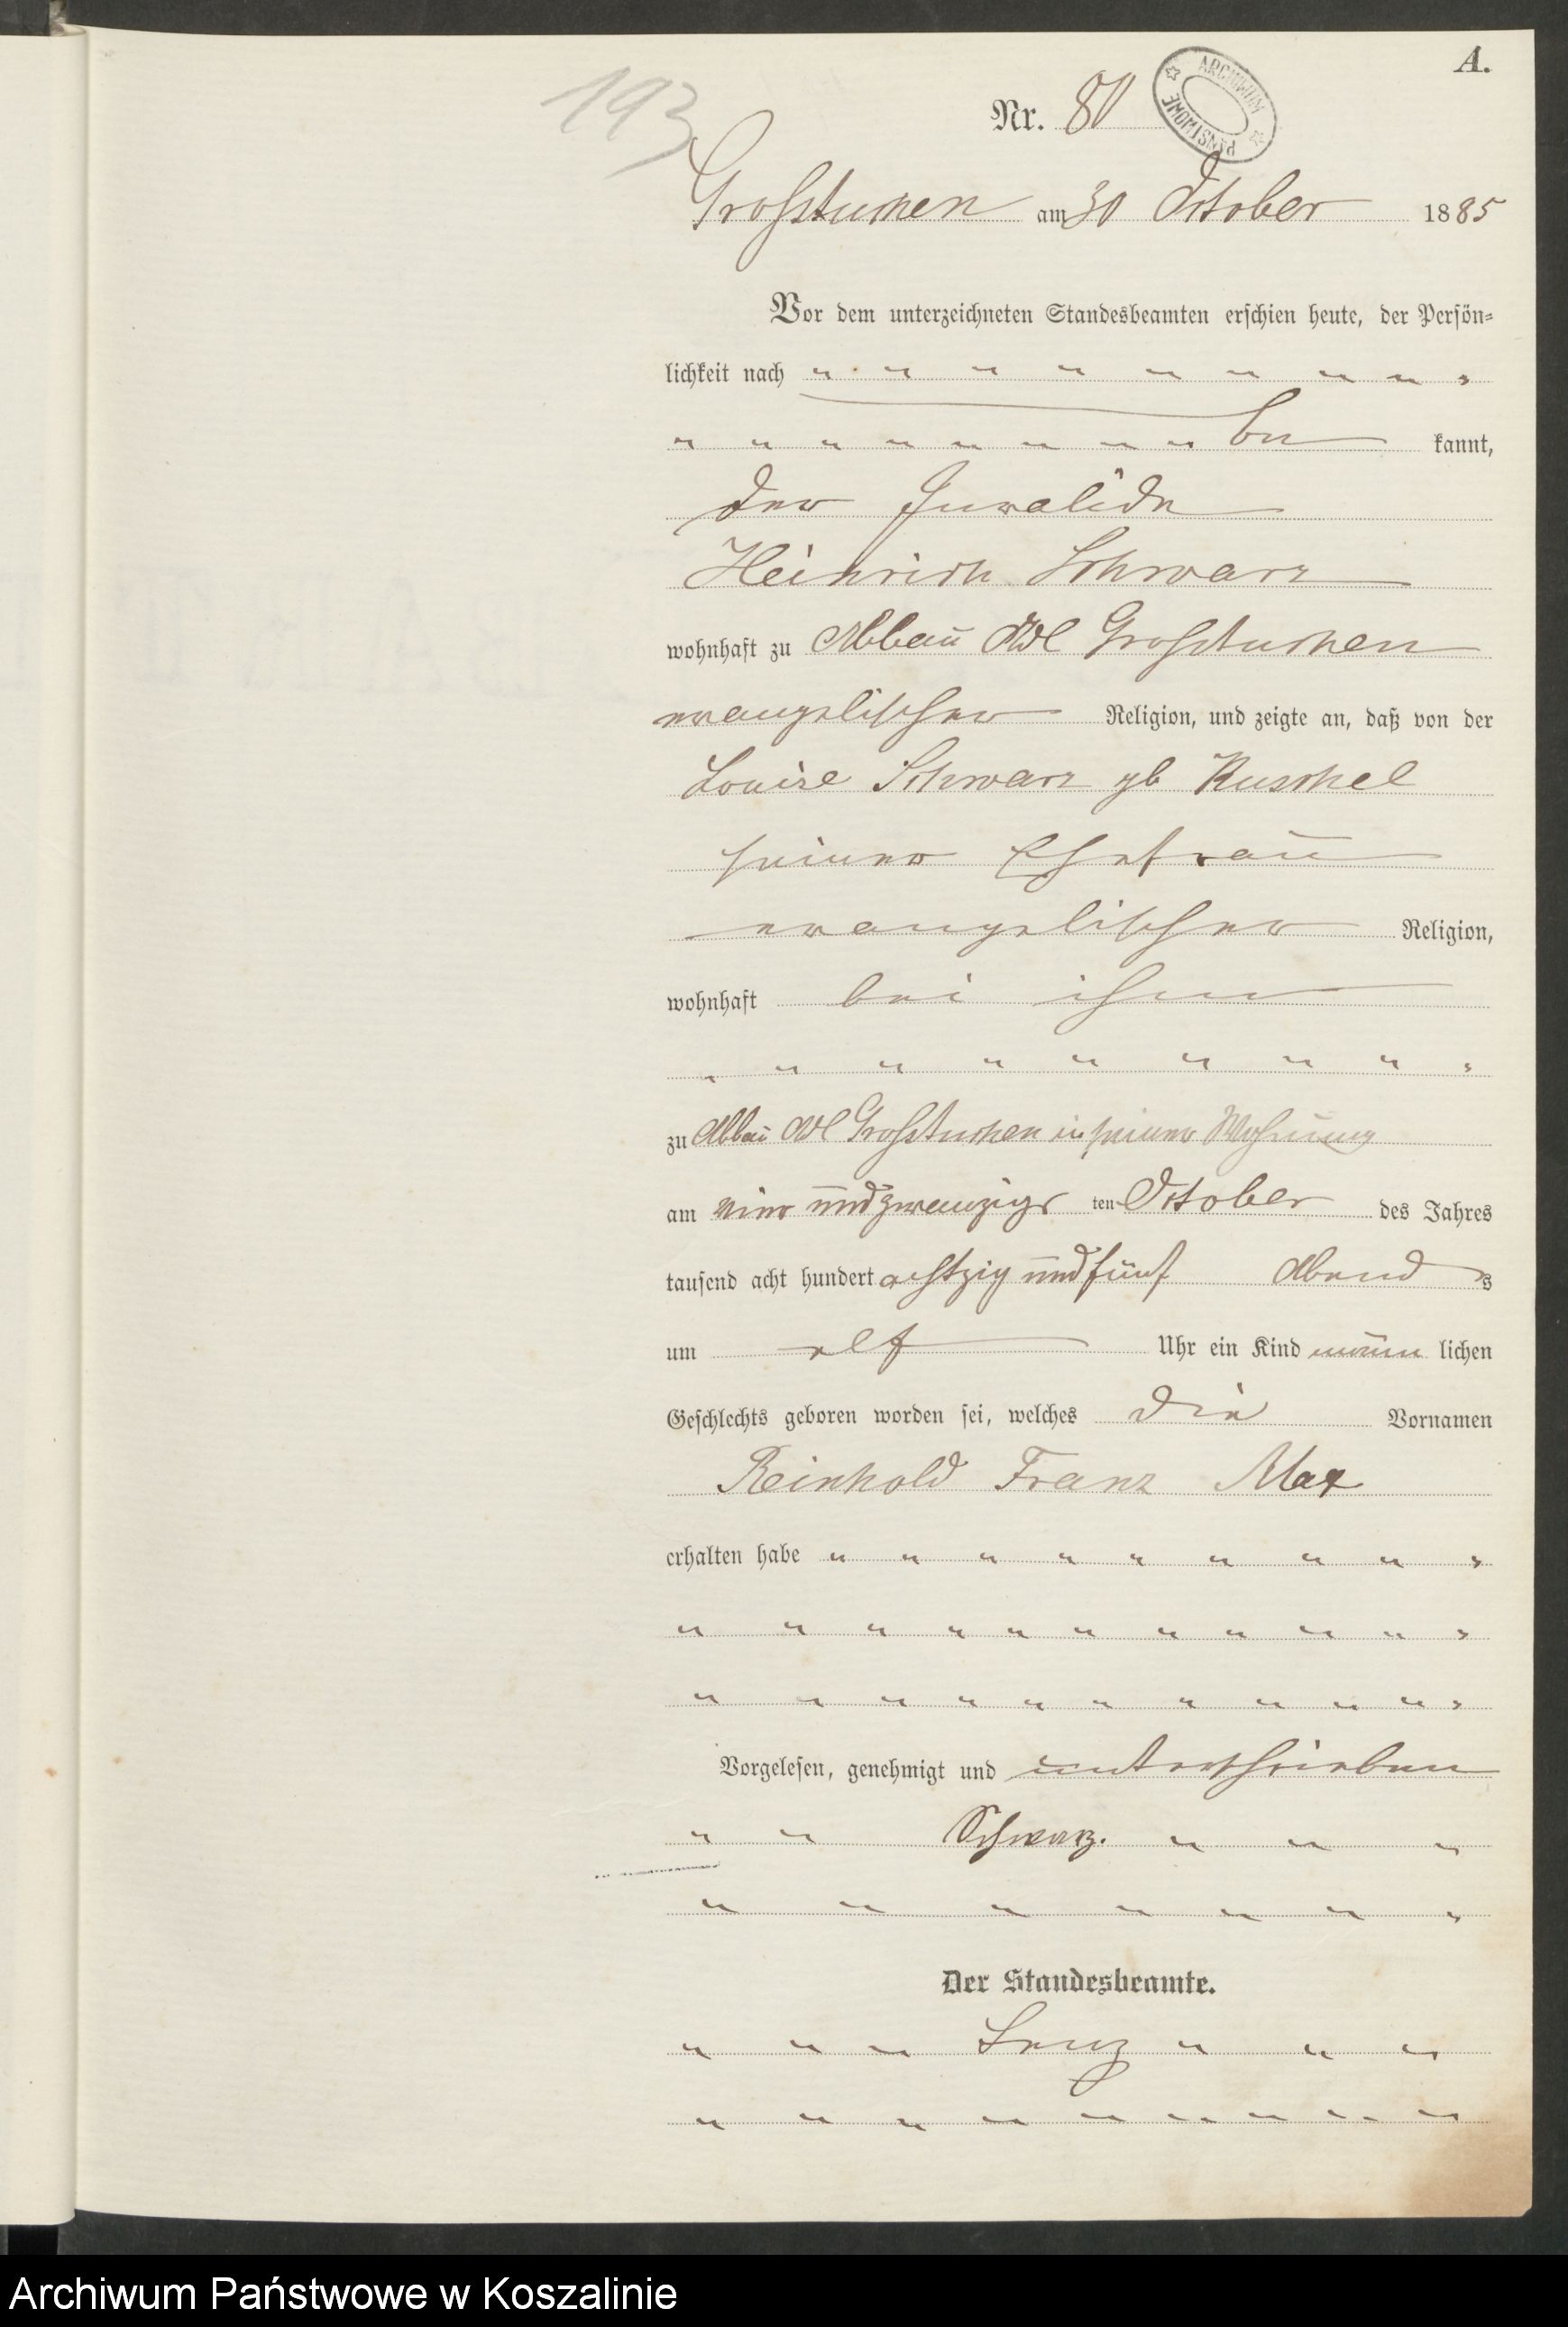 A.
193
Nr. 80
ARCHIWUM PAŃSTWOWE
Grosstuchen am 30 October 1885
Vor dem unterzeichneten Standesbeamten erschien heute, der Persön-
lichkeit nach " " " " " " " " "
" " " " " " " " be kannt,
der Invalide
Heinrich Schwarz
wohnhaft zu Abbau Adl Grosstuchen
evangelischer Religion, und zeigte an, daß von der
Louise Schwarz gb Kuschel
seiner Ehefrau
evangelischer Religion,
wohnhaft bei ihm
" " " " " " " " "
zu Abbau Adl Grosstuchen in seiner Wohnung
am vier und zwanzigs ten October des Jahres
tausend acht hundert achtzig und fünf Abend s
um elf Uhr ein Kind männ lichen
Geschlechts geboren worden sei, welches die Vornamen
Reinhold Franz Max
erhalten habe " " " " " " " " "
" " " " " " " " " " "
" " " " " " " " " " "
Vorgelesen, genehmigt und unterschrieben
" " Schwarz. " " "
" " " " " " "
Der Standesbeamte.
" " " Lenz " " "
" " " " " " " " "
Archiwum Państwowe w Koszalinie